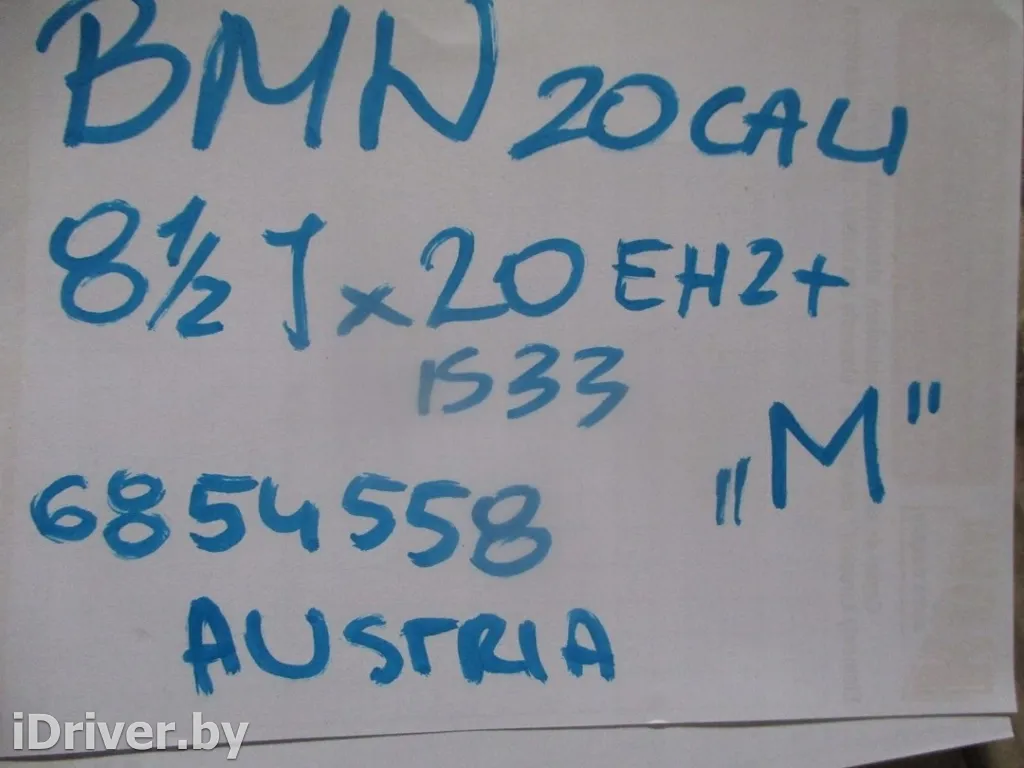 BMW 20 CALI
8 1/2 J x 20 EH2+
IS33
„M"
6854558
AUSTRIA
iDriver.by